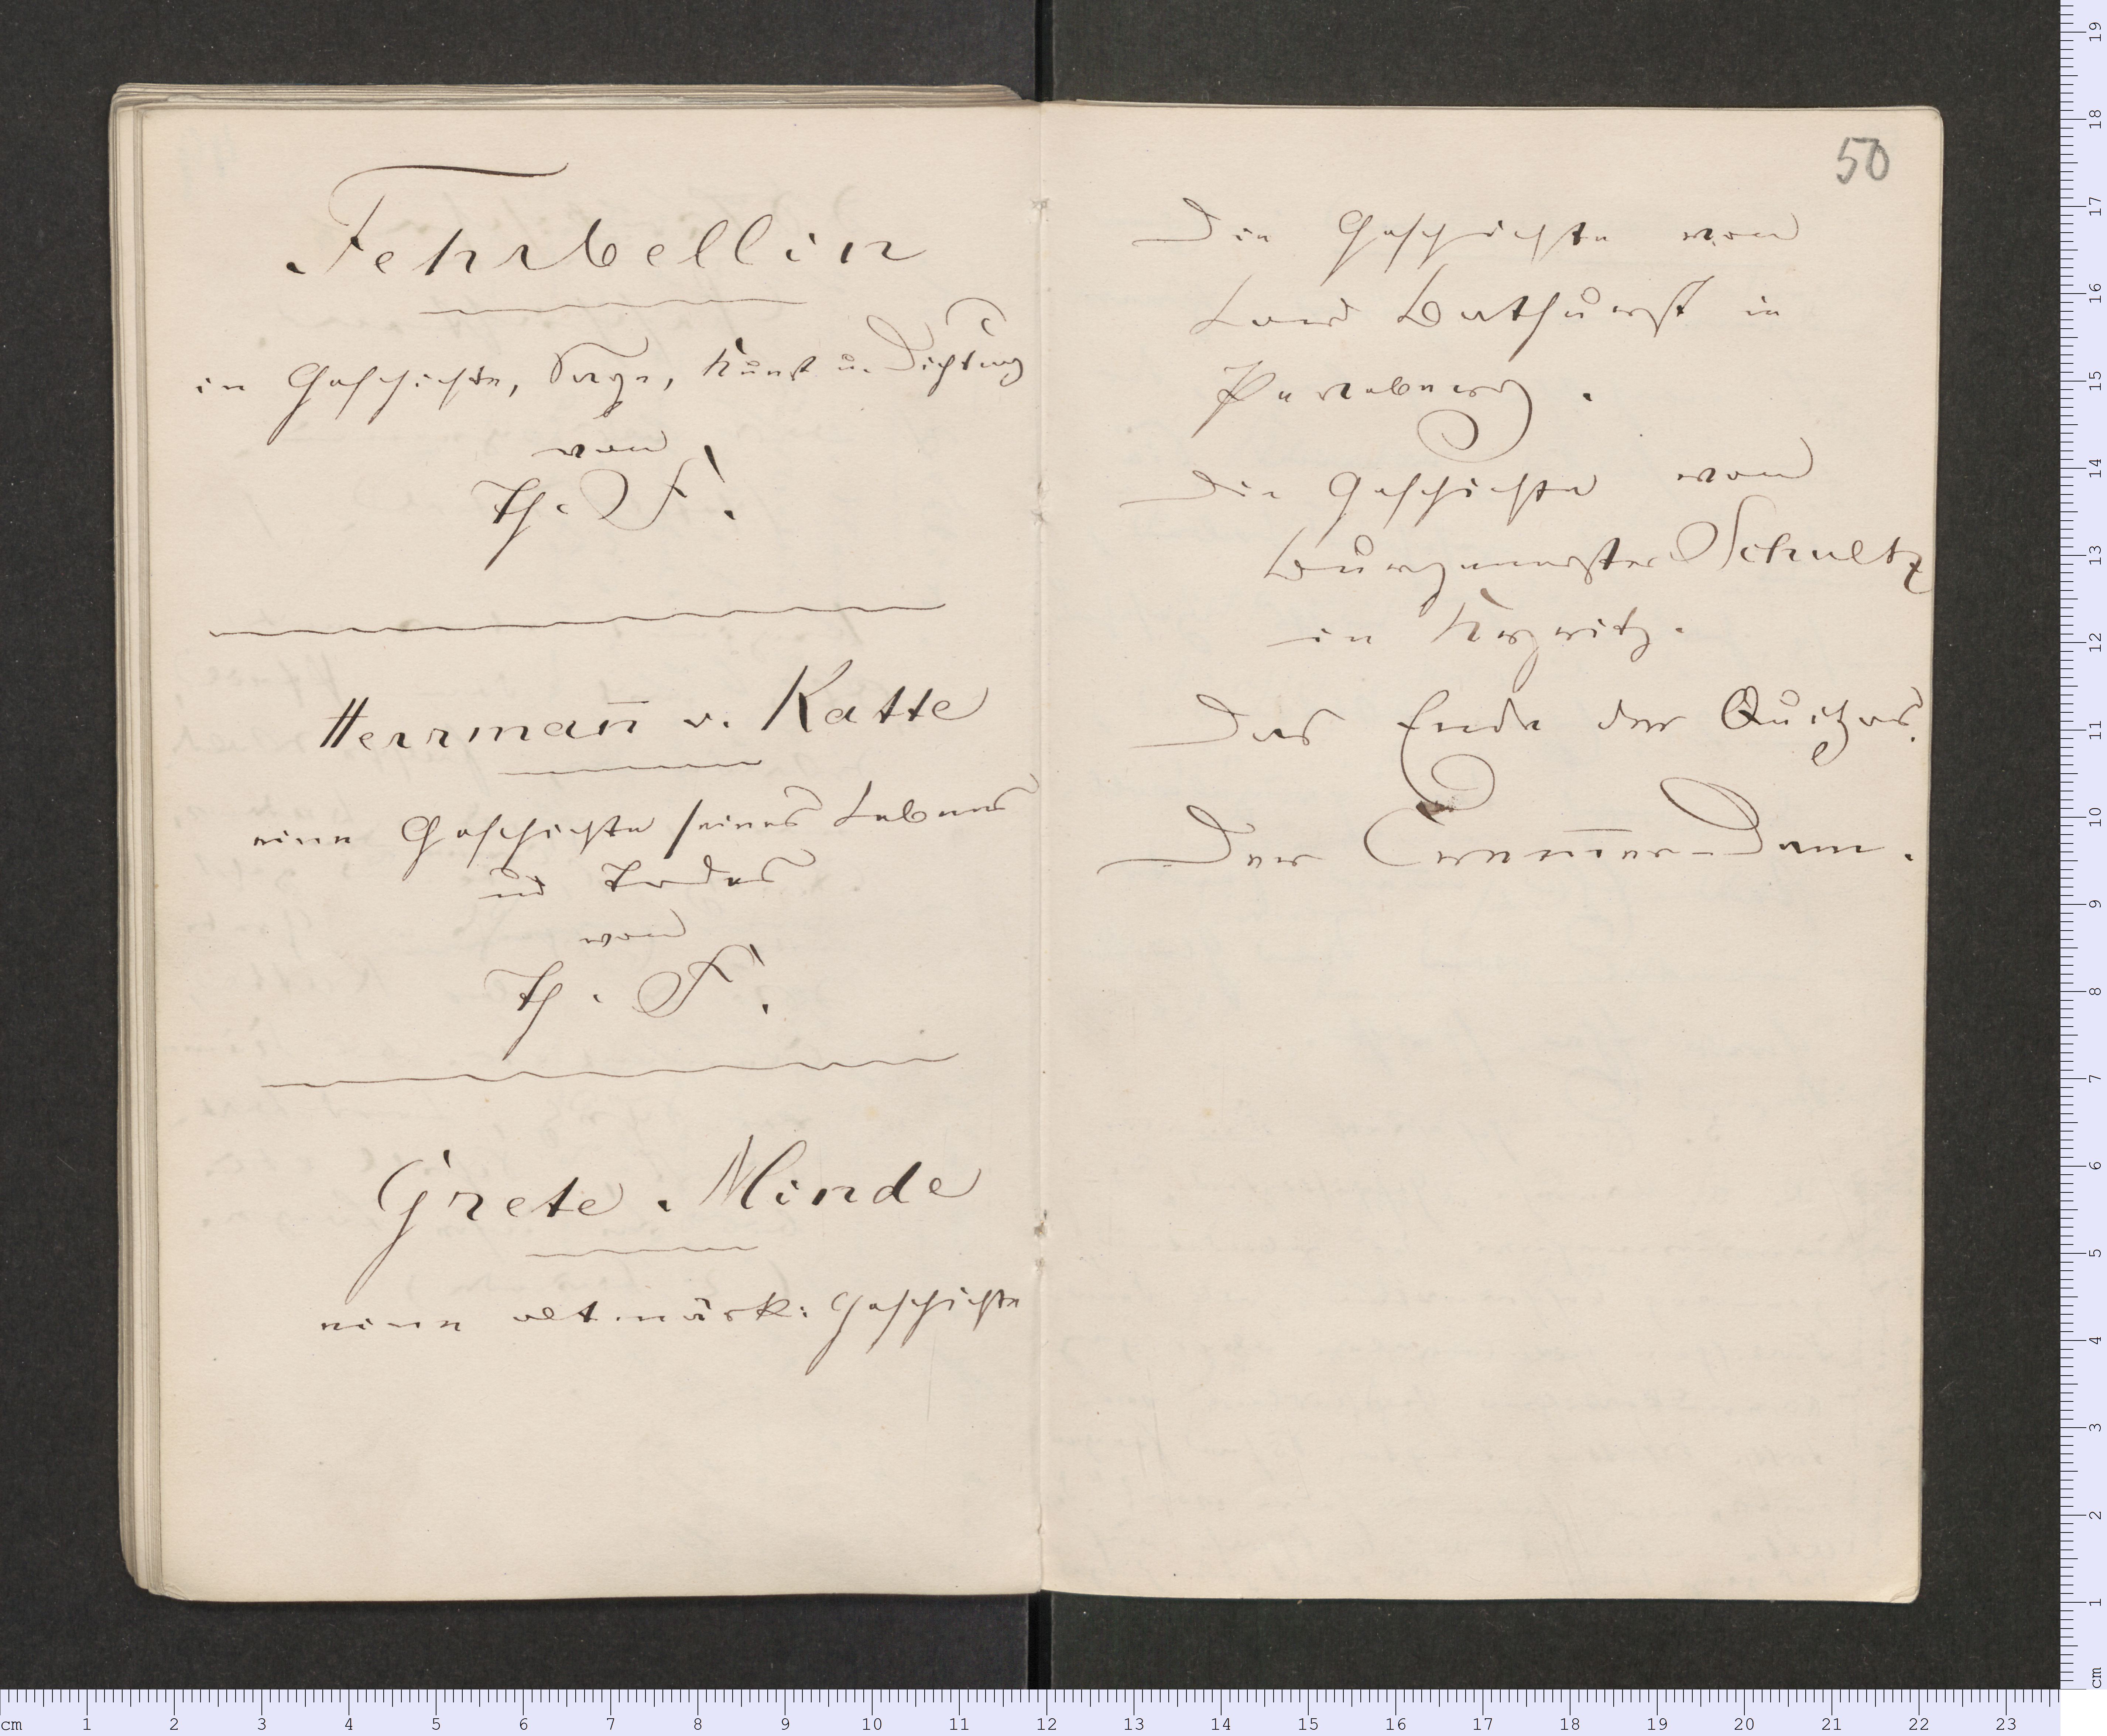 Fehrbellin
in Geschichte, Sage, Kunst u. Dichtung
von
Th. F.
Herrman̅ v. Katte
eine Geschichte seines Lebens
und Todes
von
Th. F.
Grete Minde
eine altmärk: Geschichte
50
Die Geschichte von
Lord Bathurst in
Perleberg.
Die Geschichte von
Burgemeister Schultz
in Kyritz.
Das Ende der Quitzows.
Der Crem̅er-Dam.